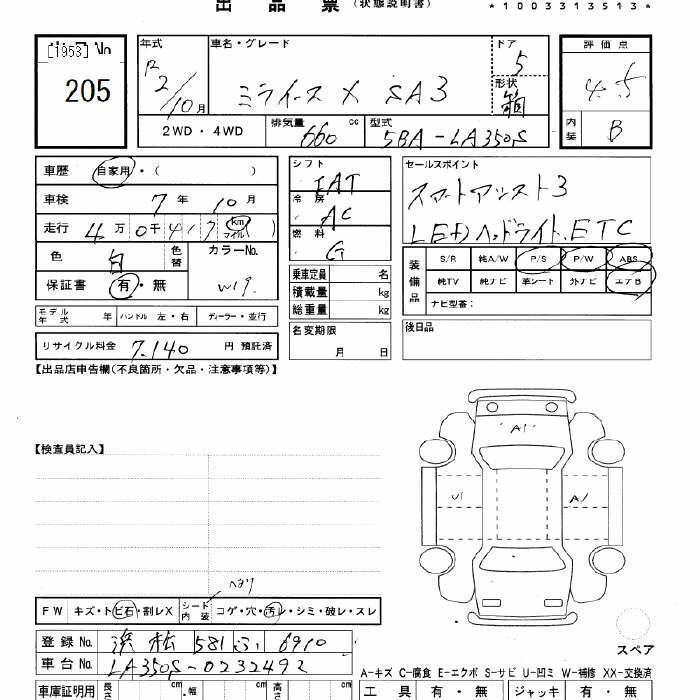 出品票（状態説明書）
*1003313513*
[1953] No
205
年式
R2/10月
車名・グレード
ミライース X SA3
ドア
5
形状
箱
評価点
4.5
内装
B
2WD・4WD
排気量 660 cc
型式 5BA-LA350S
車歴 自家用・（ ）
車検 7年10月
走行 4万0千417 km マイル（ ）
色 白 色替
カラーNo. W19.
保証書 有・無
シフト
FAT
冷房
AC
燃料
G
セールスポイント
スマートアシスト3
LEDヘッドライト、ETC
装備品
S/R 純A/W P/S P/W ABS
純TV 純ナビ 革シート 外ナビ エアB
ナビ型番：
乗車定員 名
積載量 kg
総重量 kg
モデル年式 年 ハンドル 左・右 ディーラー・並行
リサイクル料金 7,140 円 預託済
名変期限
月 日
後日品
【出品店申告欄(不良箇所・欠品・注意事項等)】
【検査員記入】
A1
U1
A1
ヘコリ
FW キズ・トビ石・割レX シート内装 コゲ・穴・汚レ・シミ・破レ・スレ
登録No. 浜松 581 ふ 6910
車台No. LA350S-0232492
スペア
A-キズ C-腐食 E-エクボ S-サビ U-凹ミ W-補修 XX-交換済
車庫証明用 長さ cm 幅 cm 高さ cm
工具 有・無 ジャッキ 有・無